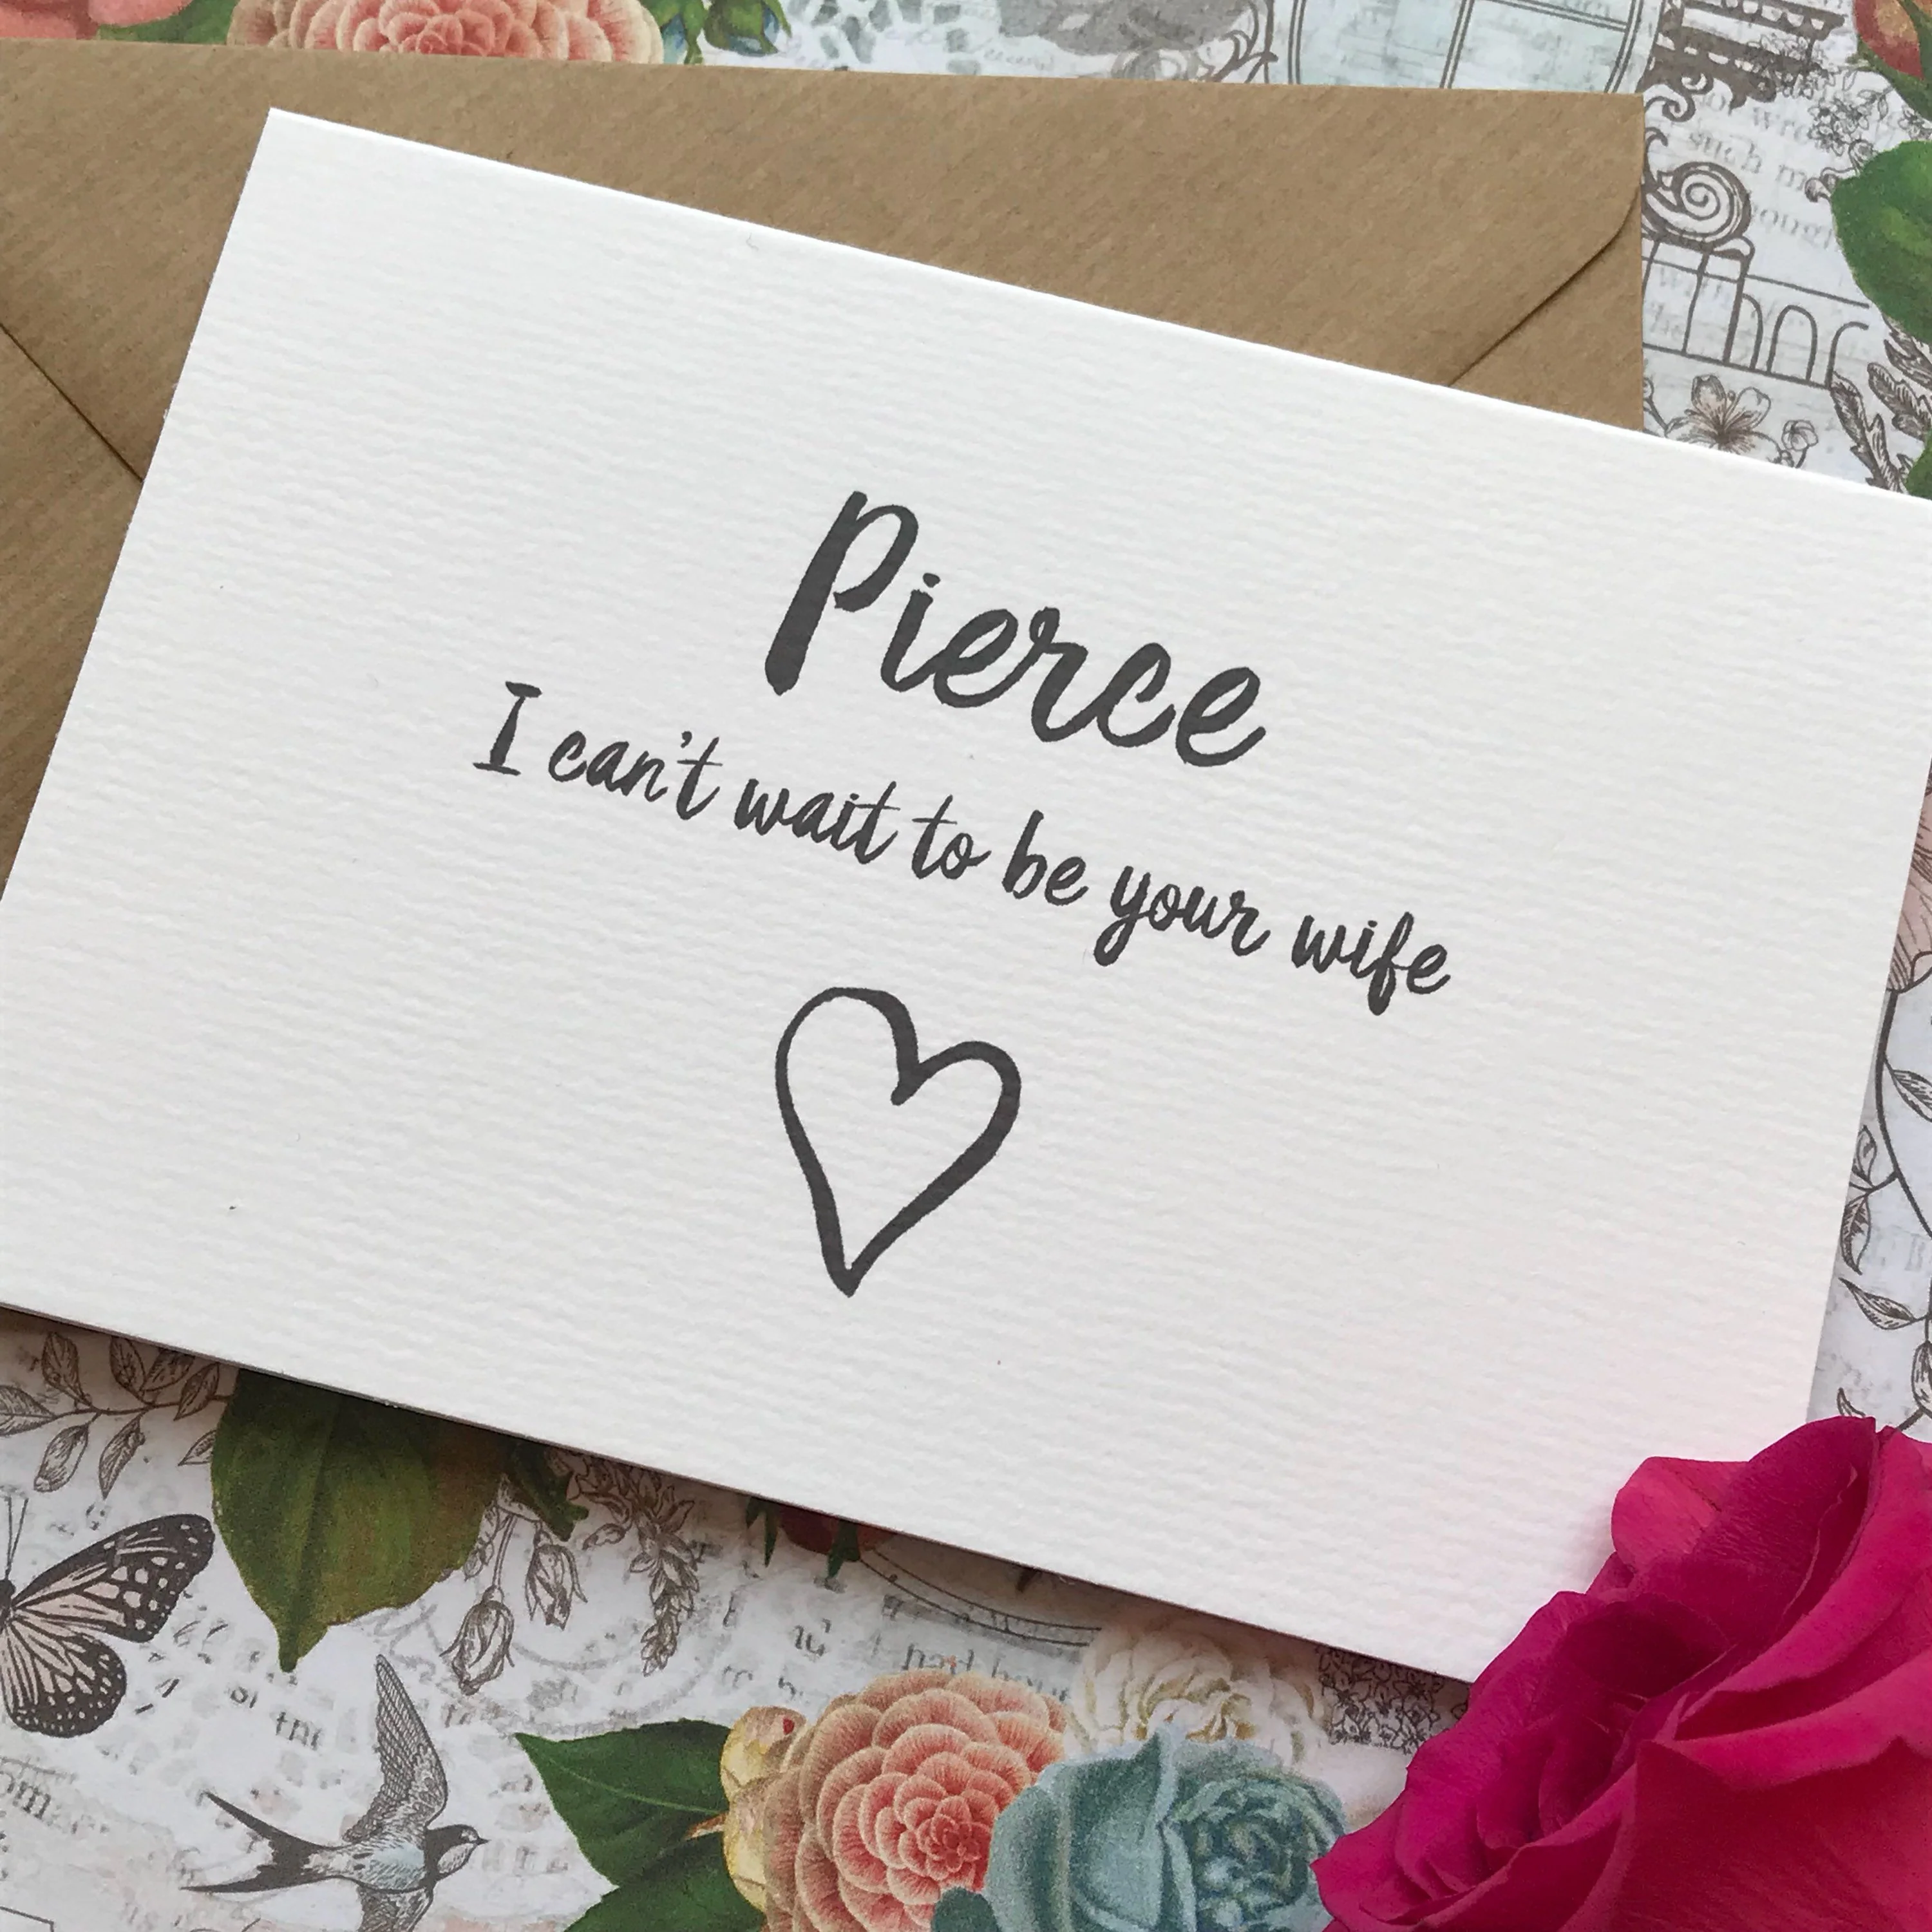 Pierce
I can't wait to be your wife